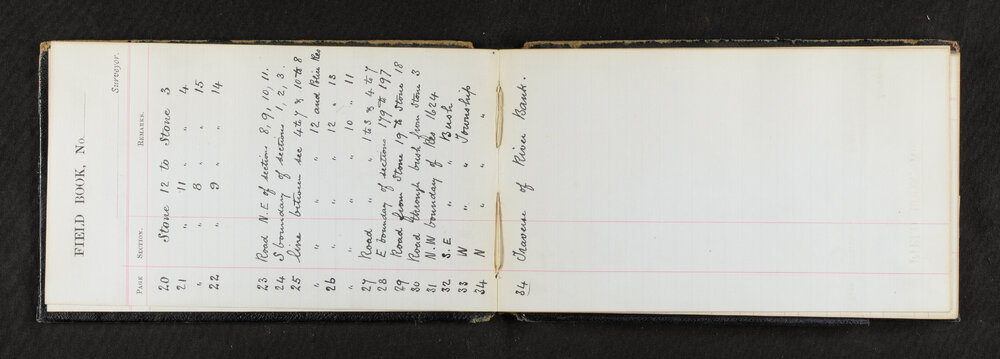 FIELD BOOK, No.
Surveyor.
PAGE SECTION. REMARKS.
20 Stone 12 to Stone 3
21 " 11 " " 4
" " 8 " " 15
22 " 9 " " 14
23 Road N.E of sections 8, 9, 10, 11.
24 S boundary of sections 1, 2, 3.
25 line between sec 4 to 7 & 10 to 8
" " " 12 and Police Res
26 " " 12 " 13
" " " 10 " 11
27 Road " 1 to 3 & 4 to 7
28 E boundary of sections 179 to 197
29 Road from Stone 19 to Stone 18
30 Road through bush from Stone 3
31 N.W boundary of Res 1624
32 S.E " " Bush
33 W " " Township
34 N " " "
34 Traverse of River Bank.